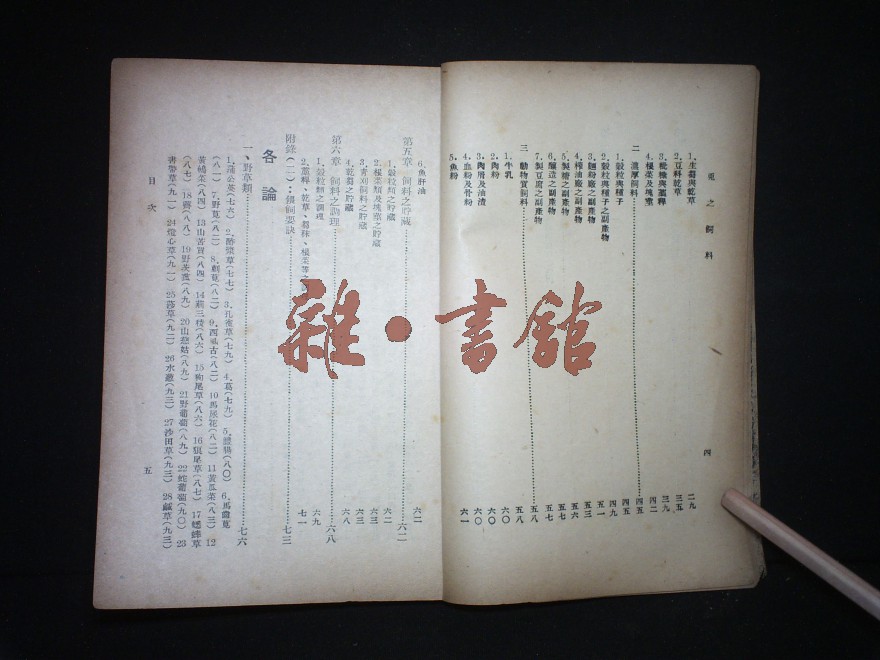 兎之飼料
四
1. 生芻與乾草 二九
2. 豆科乾草 三五
3. 秕糠與藁稈 三九
4. 根菜及塊莖 四二
二 濃厚飼料 四五
1. 穀粒與種子 四五
2. 穀粒與種子之副產物 四九
3. 麵粉廠之副產物 五一
4. 榨油廠之副產物 五三
5. 製糖之副產物 五六
6. 釀造之副產物 五七
7. 製豆腐之副產物 五八
三 動物質飼料 五八
1. 牛乳 六〇
2. 肉粉 六〇
3. 肉屑及油渣 六〇
4. 血粉及骨粉 六〇
5. 魚粉 六一
6. 魚肝油 六二
第五章 飼料之貯藏 六二
1. 穀粒類之貯藏 六二
2. 根菜類及塊莖之貯藏 六三
3. 青刈飼料之貯藏 六三
4. 乾芻之貯藏 六八
第六章 飼料之調理 六八
1. 穀粒類之調理 六九
2. 藁稈、乾草、芻秣、根菜等之 七一
附錄(二):飼飼要訣 七三
各論
一、野草類 七六
1. 蒲公英(七六) 2. 酢漿草(七七) 3. 孔雀草(七九) 4. 葛(七九) 5. (八〇) 6. 馬齒莧
(八一) 7. 野莧(八二) 8. 刺莧(八二) 9. 西風古(八二) 10 馬辰花(八二) 11 黃瓜菜(八三) 12
黃鵪菜(八四) 13 山苦賈(八四) 14 荊三稜(八六) 15 狗尾草(八六) 16 狼尾草(八七) 17 蟋蟀草
(八七) 18 薺(八八) 19 野茨菰(八九) 20 山慈姑(八九) 21 野葡萄(八九) 22 蛇葡萄(九〇) 23
書帶草(九一) 24 燈心草(九一) 25 莎草(九二) 26 水蔥(九三) 27 沙田草(九三) 28 鹹草(九三)
目次
五
雜·書館